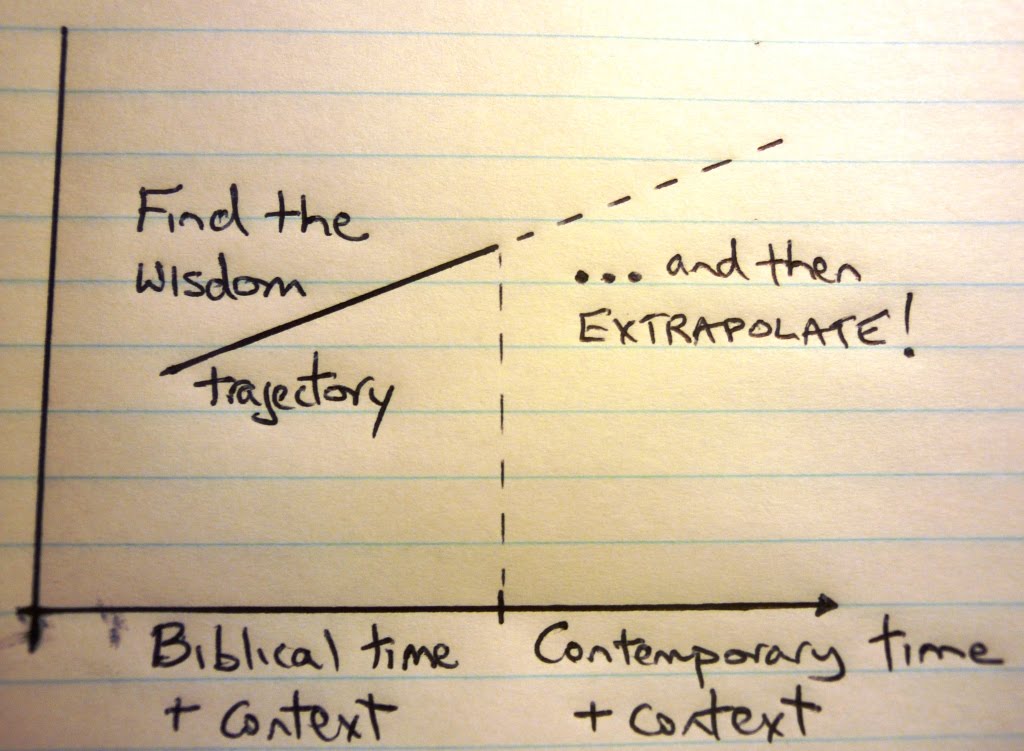 Find the
wisdom
trajectory
... and then
EXTRAPOLATE!
Biblical time
+ context
Contemporary time
+ context